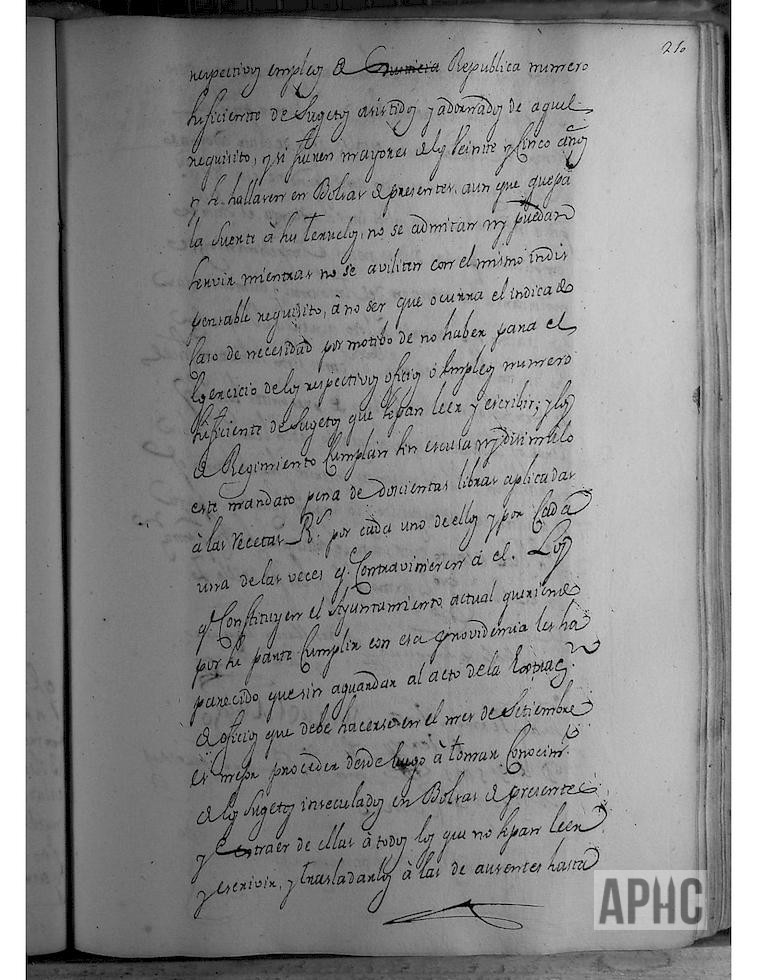 210
respectivos empleos de Republica numero
suficiente de Sugetos asistidos y adornados de aquel
requisito, y si fuesen mayores de los Veinte y Cinco años
y se hallaren en Bolsas de presentes, aun que quepa
la Suerte à sus Teruelos, no se admitan ny puedan
servir mientras no se aviliten con el mismo indis
pensable requisito, à no ser que ocurra el indicado
Caso de necesidad por motibo de no haber para el
exercicio de los respectivos oficios ó Empleos numero
suficiente de Sugetos que sepan leer y escribir; y los
de Regimiento Cumplan sin escusa ny disimulo
este mandato pena de doscientas libras aplicadas
à las Recetas Rs. por cada uno de ellos y por Cada
una de las veces q.e Contravinieren á el. Los
q.e Constituyen el Ayuntamiento actual queriendo
por su parte Cumplir con esa providencia les ha
parecido que sin aguardar al acto de la Extracn.
de oficios que debe hacerse en el mes de Setiembre
es mejor proceder desde luego à tomar Conocimto.
de los Sugetos inseculados en Bolsas de presentes
y extraer de ellas à todos los que no sepan leer
y escrivir, y trasladarlos à las de ausentes hasta
APHC